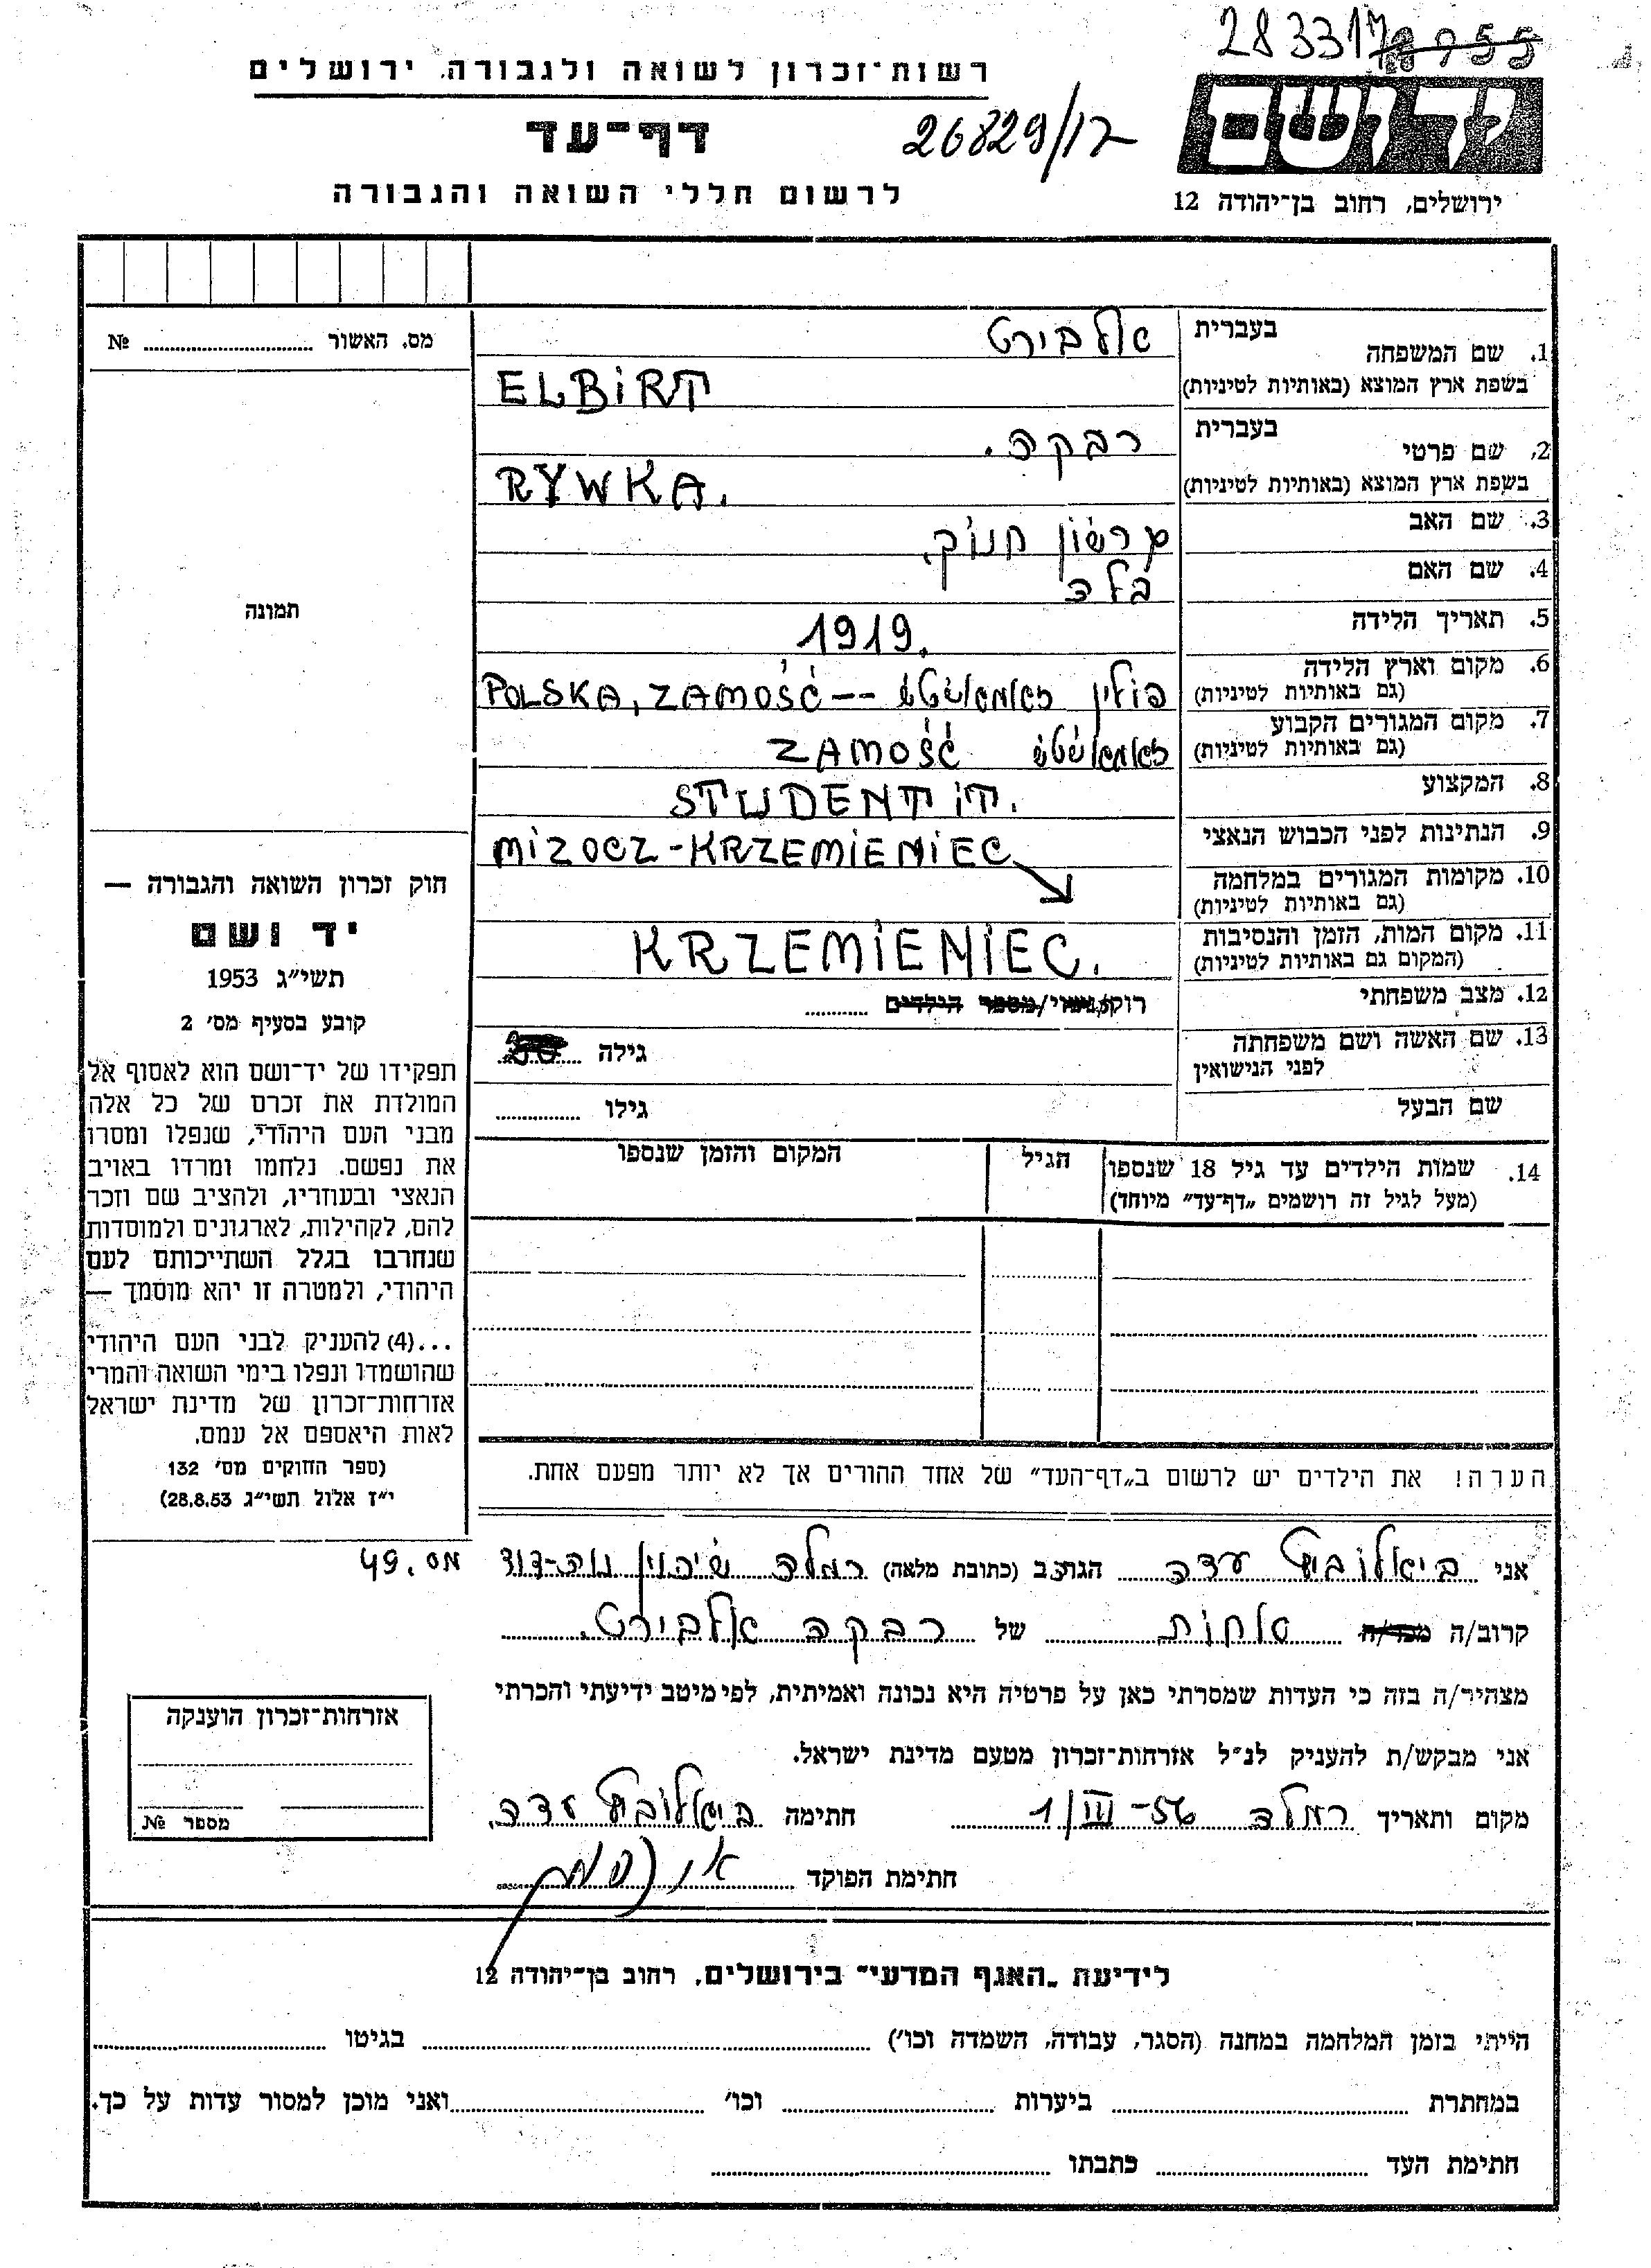 283317 28955
רשות־זכרון לשואה ולגבורה, ירושלים
דף־עד
26829/12
ידושם
לרשום חללי השואה והגבורה
ירושלים, רחוב בן־יהודה 12
מס. האשור № 
1. שם המשפחה
בעברית אלבירט
בשפת ארץ המוצא (באותיות לטיניות) ELBIRT
2. שם פרטי
בעברית רבקה.
בשפת ארץ המוצא (באותיות לטיניות) RYWKA.
3. שם האב גרשון חנוך.
4. שם האם בלה
תמונה
5. תאריך הלידה 1919.
6. מקום וארץ הלידה
(גם באותיות לטיניות) פולין זאמאשטש -- POLSKA, ZAMOŚĆ
7. מקום המגורים הקבוע
(גם באותיות לטיניות) זאמאשטש ZAMOŚĆ
8. המקצוע STUDENTIT.
9. הנתינות לפני הכבוש הנאצי MIZOCZ - KRZEMIENIEC
10. מקומות המגורים במלחמה
(גם באותיות לטיניות)
11. מקום המות, הזמן והנסיבות
(המקום גם באותיות לטיניות) KRZEMIENIEC.
12. מצב משפחתי רוק/נשוי/מספר הילדים
13. שם האשה ושם משפחתה
לפני הנישואין גילה
שם הבעל גילו
14. שמות הילדים עד גיל 18 שנספו הגיל המקום והזמן שנספו
(מעל לגיל זה רושמים „דף־עד״ מיוחד)
חוק זכרון השואה והגבורה —
יד ושם
תשי״ג 1953
קובע בסעיף מס׳ 2
תפקידו של יד־ושם הוא לאסוף אל
המולדת את זכרם של כל אלה
מבני העם היהודי, שנפלו ומסרו
את נפשם. נלחמו ומרדו באויב
הנאצי ובעוזריו, ולהציב שם וזכר
להם, לקהילות, לארגונים ולמוסדות
שנחרבו בגלל השתייכותם לעם
היהודי, ולמטרה זו יהא מוסמך —
...(4) להעניק לבני העם היהודי
שהושמדו ונפלו בימי השואה והמרי
אזרחות־זכרון של מדינת ישראל
לאות היאספם אל עמם.
(ספר החוקים מס׳ 132
י״ז אלול תשי״ג 28.8.53)
הערה! את הילדים יש לרשום ב„דף־העד״ של אחד ההורים אך לא יותר מפעם אחת.
אני ביאלוביט עדה הגר/ב (כתובת מלאה) רמלה שיכון נוה-דוד מס. 49
קרוב/ה מכר/ה אחות של רבקה אלבירט.
מצהיר/ה בזה כי העדות שמסרתי כאן על פרטיה היא נכונה ואמיתית, לפי מיטב ידיעתי והכרתי
אני מבקש/ת להעניק לנ״ל אזרחות־זכרון מטעם מדינת ישראל.
מקום ותאריך רמלה 1/III-56 חתימה ביאלוביט עדה.
חתימת הפוקד
אזרחות־זכרון הוענקה
מספר №
לידיעת „האגף המדעי״ בירושלים, רחוב בן־יהודה 12
הייתי בזמן המלחמה במחנה (הסגר, עבודה, השמדה וכו׳) בגיטו
במחתרת ביערות וכו׳ ואני מוכן למסור עדות על כך.
חתימת העד כתבתו